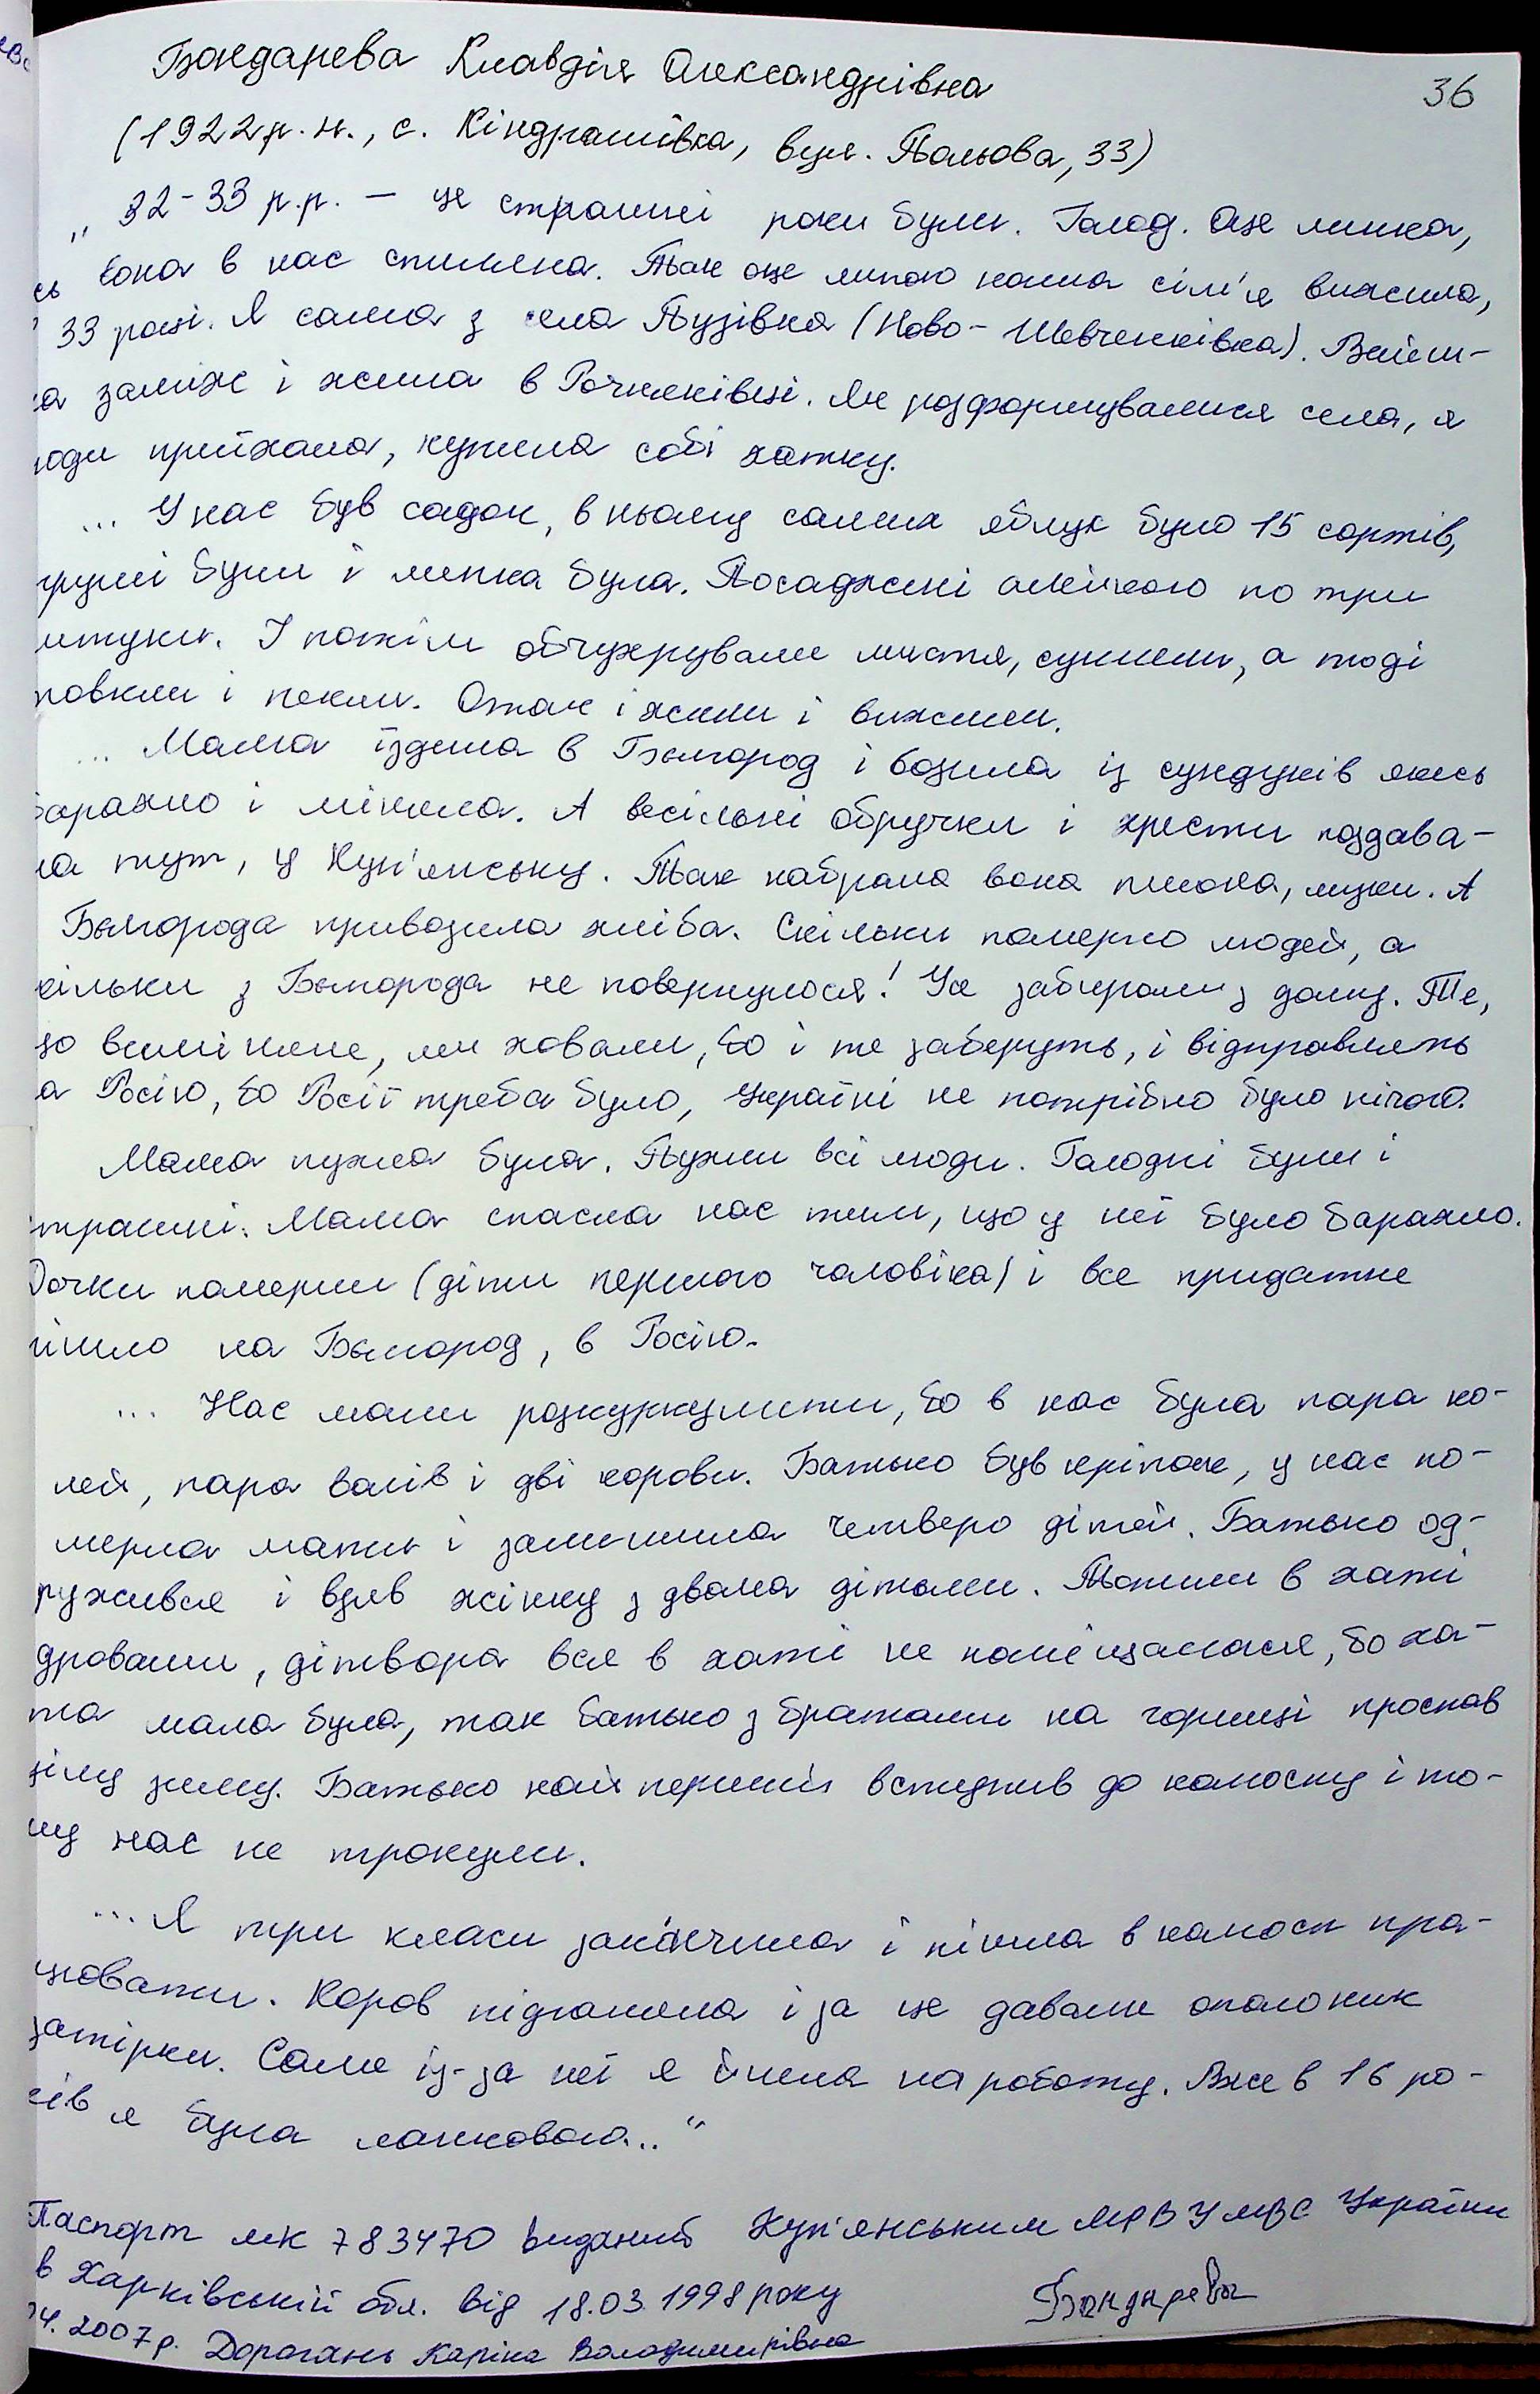 36
Бондарева Клавдія Олександрівна
(1922 р.н., с. Кіндрашівка, вул. Польова, 33)
„ 32-33 р.р. – це страшні роки були. Голод. Оце липка,
сь вона в нас спилена. Так оце липою наша сім'я вижила,
33 році. Я сама з села Пузівка (Ново-Шевченківка). Вийш-
ла заміж і жила в Рочняківці. Як розформувалися села, я
юди приїхала, купила собі хатку.
... У нас був садок, в ньому самих яблук було 15 сортів,
груші були і липка була. Посаджені алейкою по три
штуки. І потім обчухрували листя, сушили, а тоді
товкли і пекли. Отак і жили і вижили.
... Мама їздила в Бєлгород і возила із сундуків якесь
барахло і міняла. А весільні обручки і хрести поздава-
ла тут, у Куп'янську. Так набрала вона пшона, муки. А
Бєлгорода привозила хліба. Скільки померло людей, а
кільки з Бєлгорода не повернулося! Усе забирали з дому. Те,
що виміняне, ми ховали, бо і те заберуть, і відправлять
а Росію, бо Росії треба було, Україні не потрібно було нічого.
Мама пухла була. Пухли всі люди. Голодні були і
страшні. Мама спасла нас тим, що у неї було барахло.
Дочки померли (діти першого чоловіка) і все придатне
пішло на Бєлгород, в Росію.
... Нас мали розкуркулити, бо в нас була пара ко-
ней, пара волів і дві корови. Батько був кріпак, у нас по-
мерла мати і залишила четверо дітей. Батько од-
ружився і взяв жінку з двома дітьми. Топили в хаті
дровами, дітвора вся в хаті не поміщалася, бо ха-
та мала була, так батько з братами на горищі проспав
цілу зиму. Батько найперший вступив до колоспу і то-
му нас не тронули.
... Я три класи закінчила і пішла в колосп пра-
цювати. Коров підганяла і за це давали ополоник
затірки. Саме із-за неї я йшла на роботу. Вже в 16 ро-
ків я була ланковою..."
Паспорт МК 783470 виданий Куп'янським МРВУМВС України
в Харківській обл. від 18.03.1998 року
Бондарева
04. 2007р. Дорогань Каріна Володимирівна